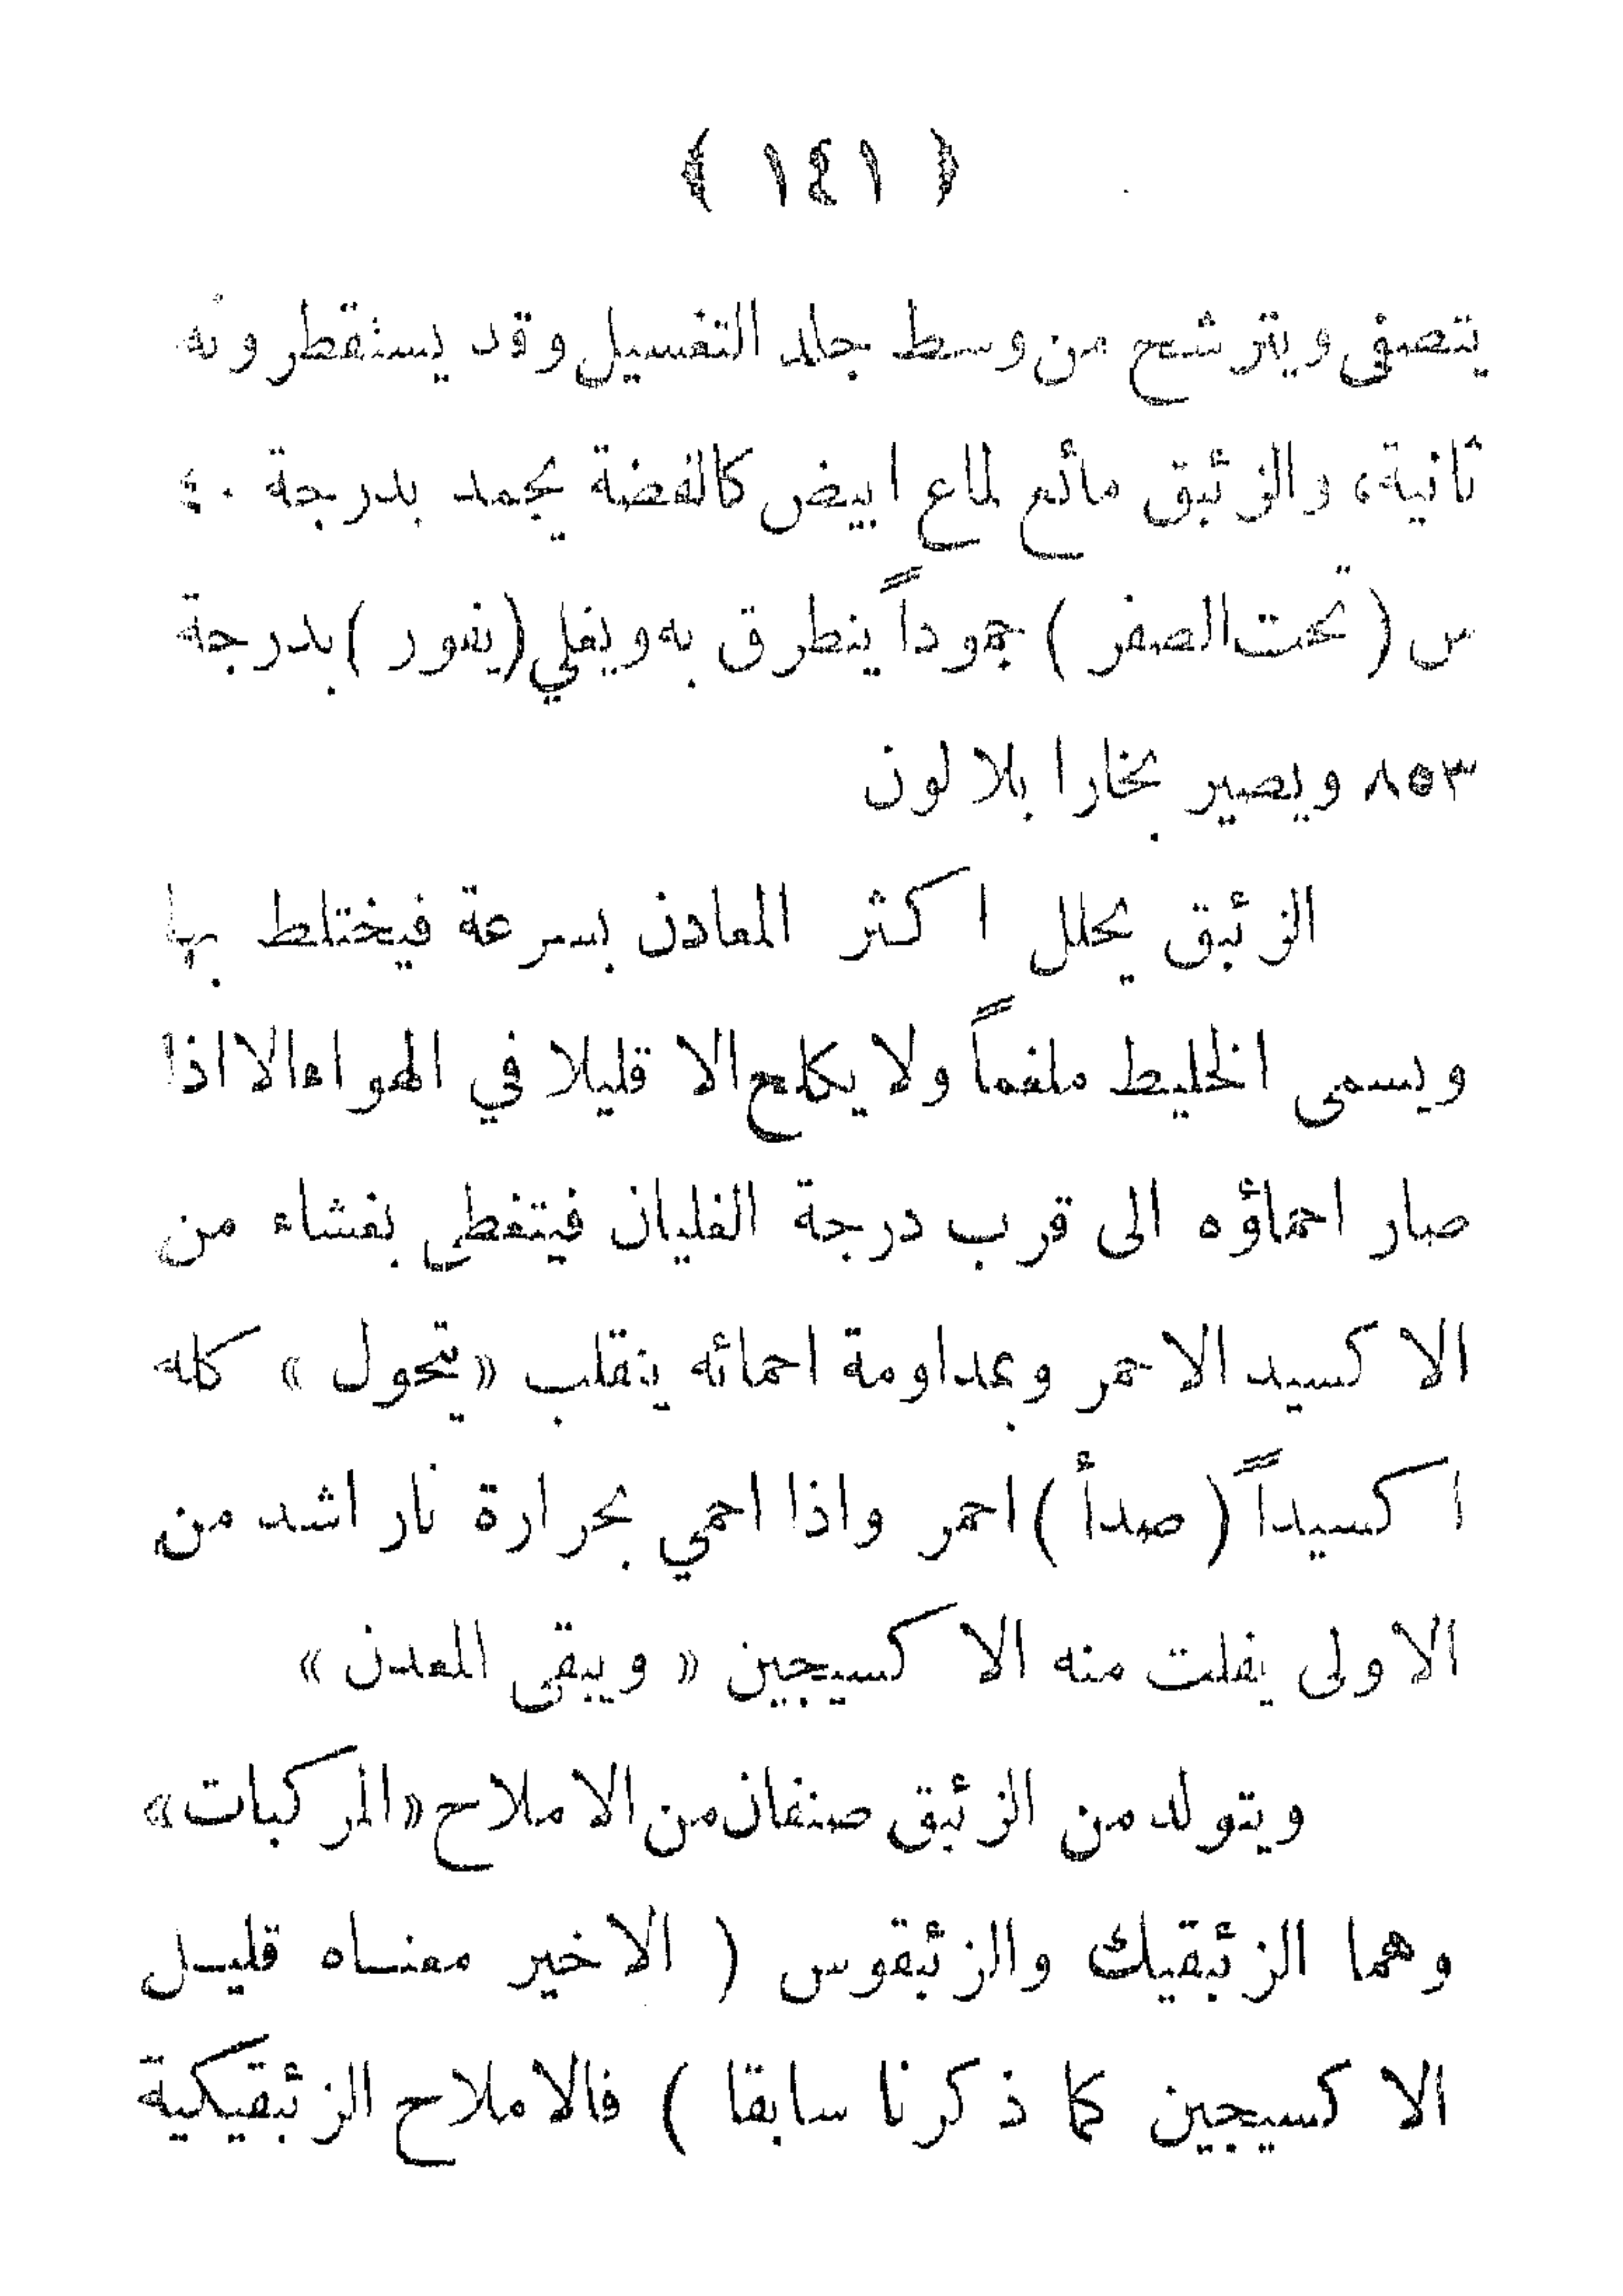 ﴿ ١٤١ ﴾
يتصفى ويترشح من وسط جلد التغسيل وقد يستقطرونه
ثانية، والزئبق مائع لماع ابيض كالفضة يجمد بدرجة ٤٠
س ( تحت الصفر ) جموداً ينطرق به ويغلي (يفور ) بدرجة
٣٥٨ ويصير بخارا بلا لون
الزئبق يحلل اكثر المعادن بسرعة فيختلط بها
ويسمى الخليط ملغماً ولا يكلح الا قليلا في الهواء الا اذا
صار احماؤه الى قرب درجة الغليان فيتغطى بغشاء من
الاكسيد الاحمر وبمداومة احمائه ينقلب «يتحول » كله
اكسيداً ( صدأ ) احمر واذا احمي بحرارة نار اشد من
الاولى يفلت منه الاكسيجين « ويبقى المعدن »
ويتولد من الزئبق صنفان من الاملاح «المركبات»
وهما الزئبقيك والزئبقوس ( الاخير معناه قليل
الاكسيجين كما ذكرنا سابقا ) فالاملاح الزئبقيكية